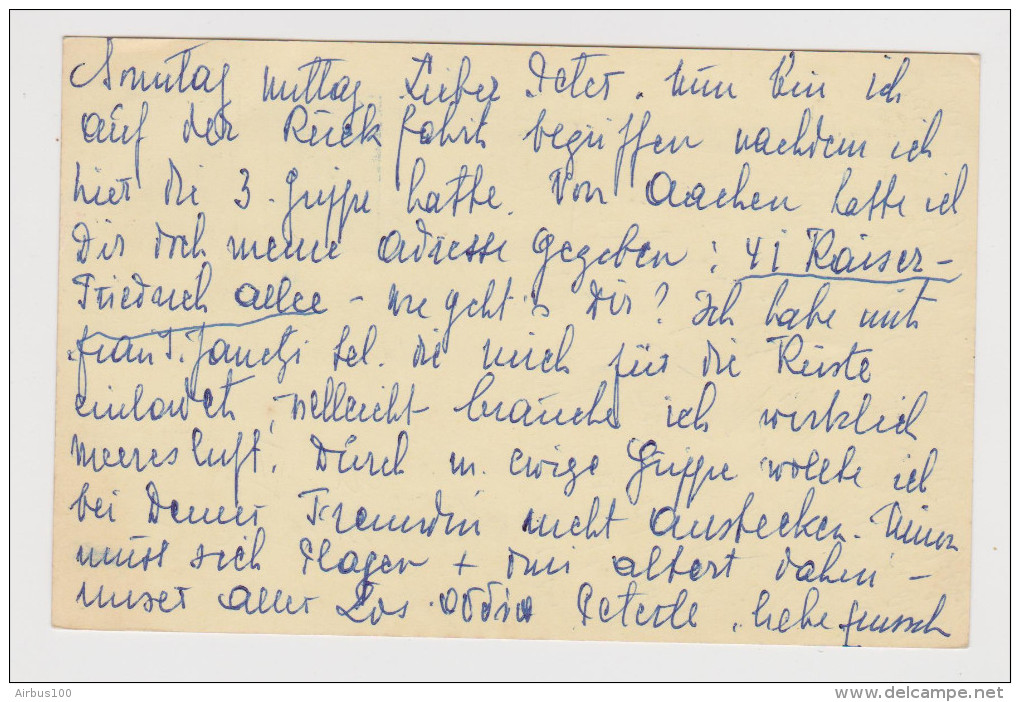 Sonntag mittag. Lieber Peter. Nun bin ich
auf der Rückfahrt begriffen nachdem ich
hier die 3. Grippe hatte. Von Aachen hatte ich
Dir doch meine Adresse gegeben: 41 Kaiser-
Friedrich allee - wie geht's Dir? Ich habe mit
Frau J. tel. die mich für die Küste
einladet, vielleicht brauche ich wirklich
Meeresluft. Durch m. ewige Grippe wollte ich
bei Deiner Freundin nicht anstecken.
muss sich plagen + altert dahin -
unser aller Los. addio Peterle, liebe
Airbus100
www.delcampe.net